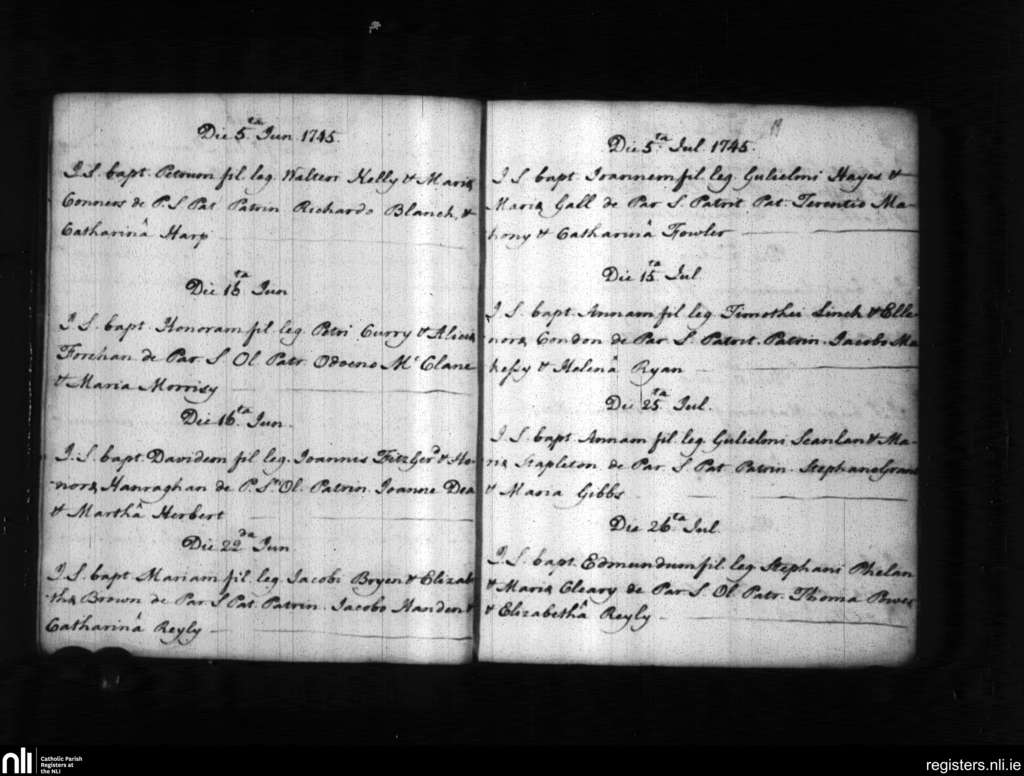 Die 5.ta Jun 1745.
J.S. bapt. Petrum fil. leg. Walteri Kelly & Mariæ
Conners de P.S Pat Patrin Richardo Blanch &
Catharinâ Harp
Die 15ta Jun
J.S. bapt. Honoram fil. leg. Petri Curry & Aliciæ
Forehan de Par S. Ol. Patr. Odoeno Mc Clane
& Maria Morrisy
Die 16ta Jun.
J.S. bapt. Davidem fil leg. Joannis Fitzgerd & Ho-
noræ Hanraghan de P. Sti Ol. Patrin Joanne Dea
& Marthâ Herbert
Die 22da Jun
J.S. bapt Mariam fil. leg. Jacobi Bryen & Elizab
thæ Brown de Par S Pat. Patrin. Jacobo Handen &
Catharinâ Reyly
19
Die 5ta Jul. 1745.
J S. bapt. Joannem fil. leg. Gulielmi Hayes &
Mariæ Gall de Par S. Patrit Pat. Terentio Ma-
hony & Catharinâ Fowler
Die 15ta Jul
J S. bapt. Annam fil. leg. Timothei Linch & Elle-
noræ Condon de Par S. Patrit. Patrin. Jacobo Ma
kessy & Helenâ Ryan
Die 25ta Jul.
J S. bapt. Annam fil leg. Gulielmi Scanlan & Ma-
riæ Stapleton de Par. S. Pat Patrin. Stephano Grant
& Maria Gibbs
Die 26ta Jul.
J.S. bapt. Edmundum fil. leg Stephani Phelan
& Mariæ Cleary de Par S. Ol Patr. Thoma
& Elizabethâ Reyly
nli
Catholic Parish
Registers at
the NLI
registers.nli.ie